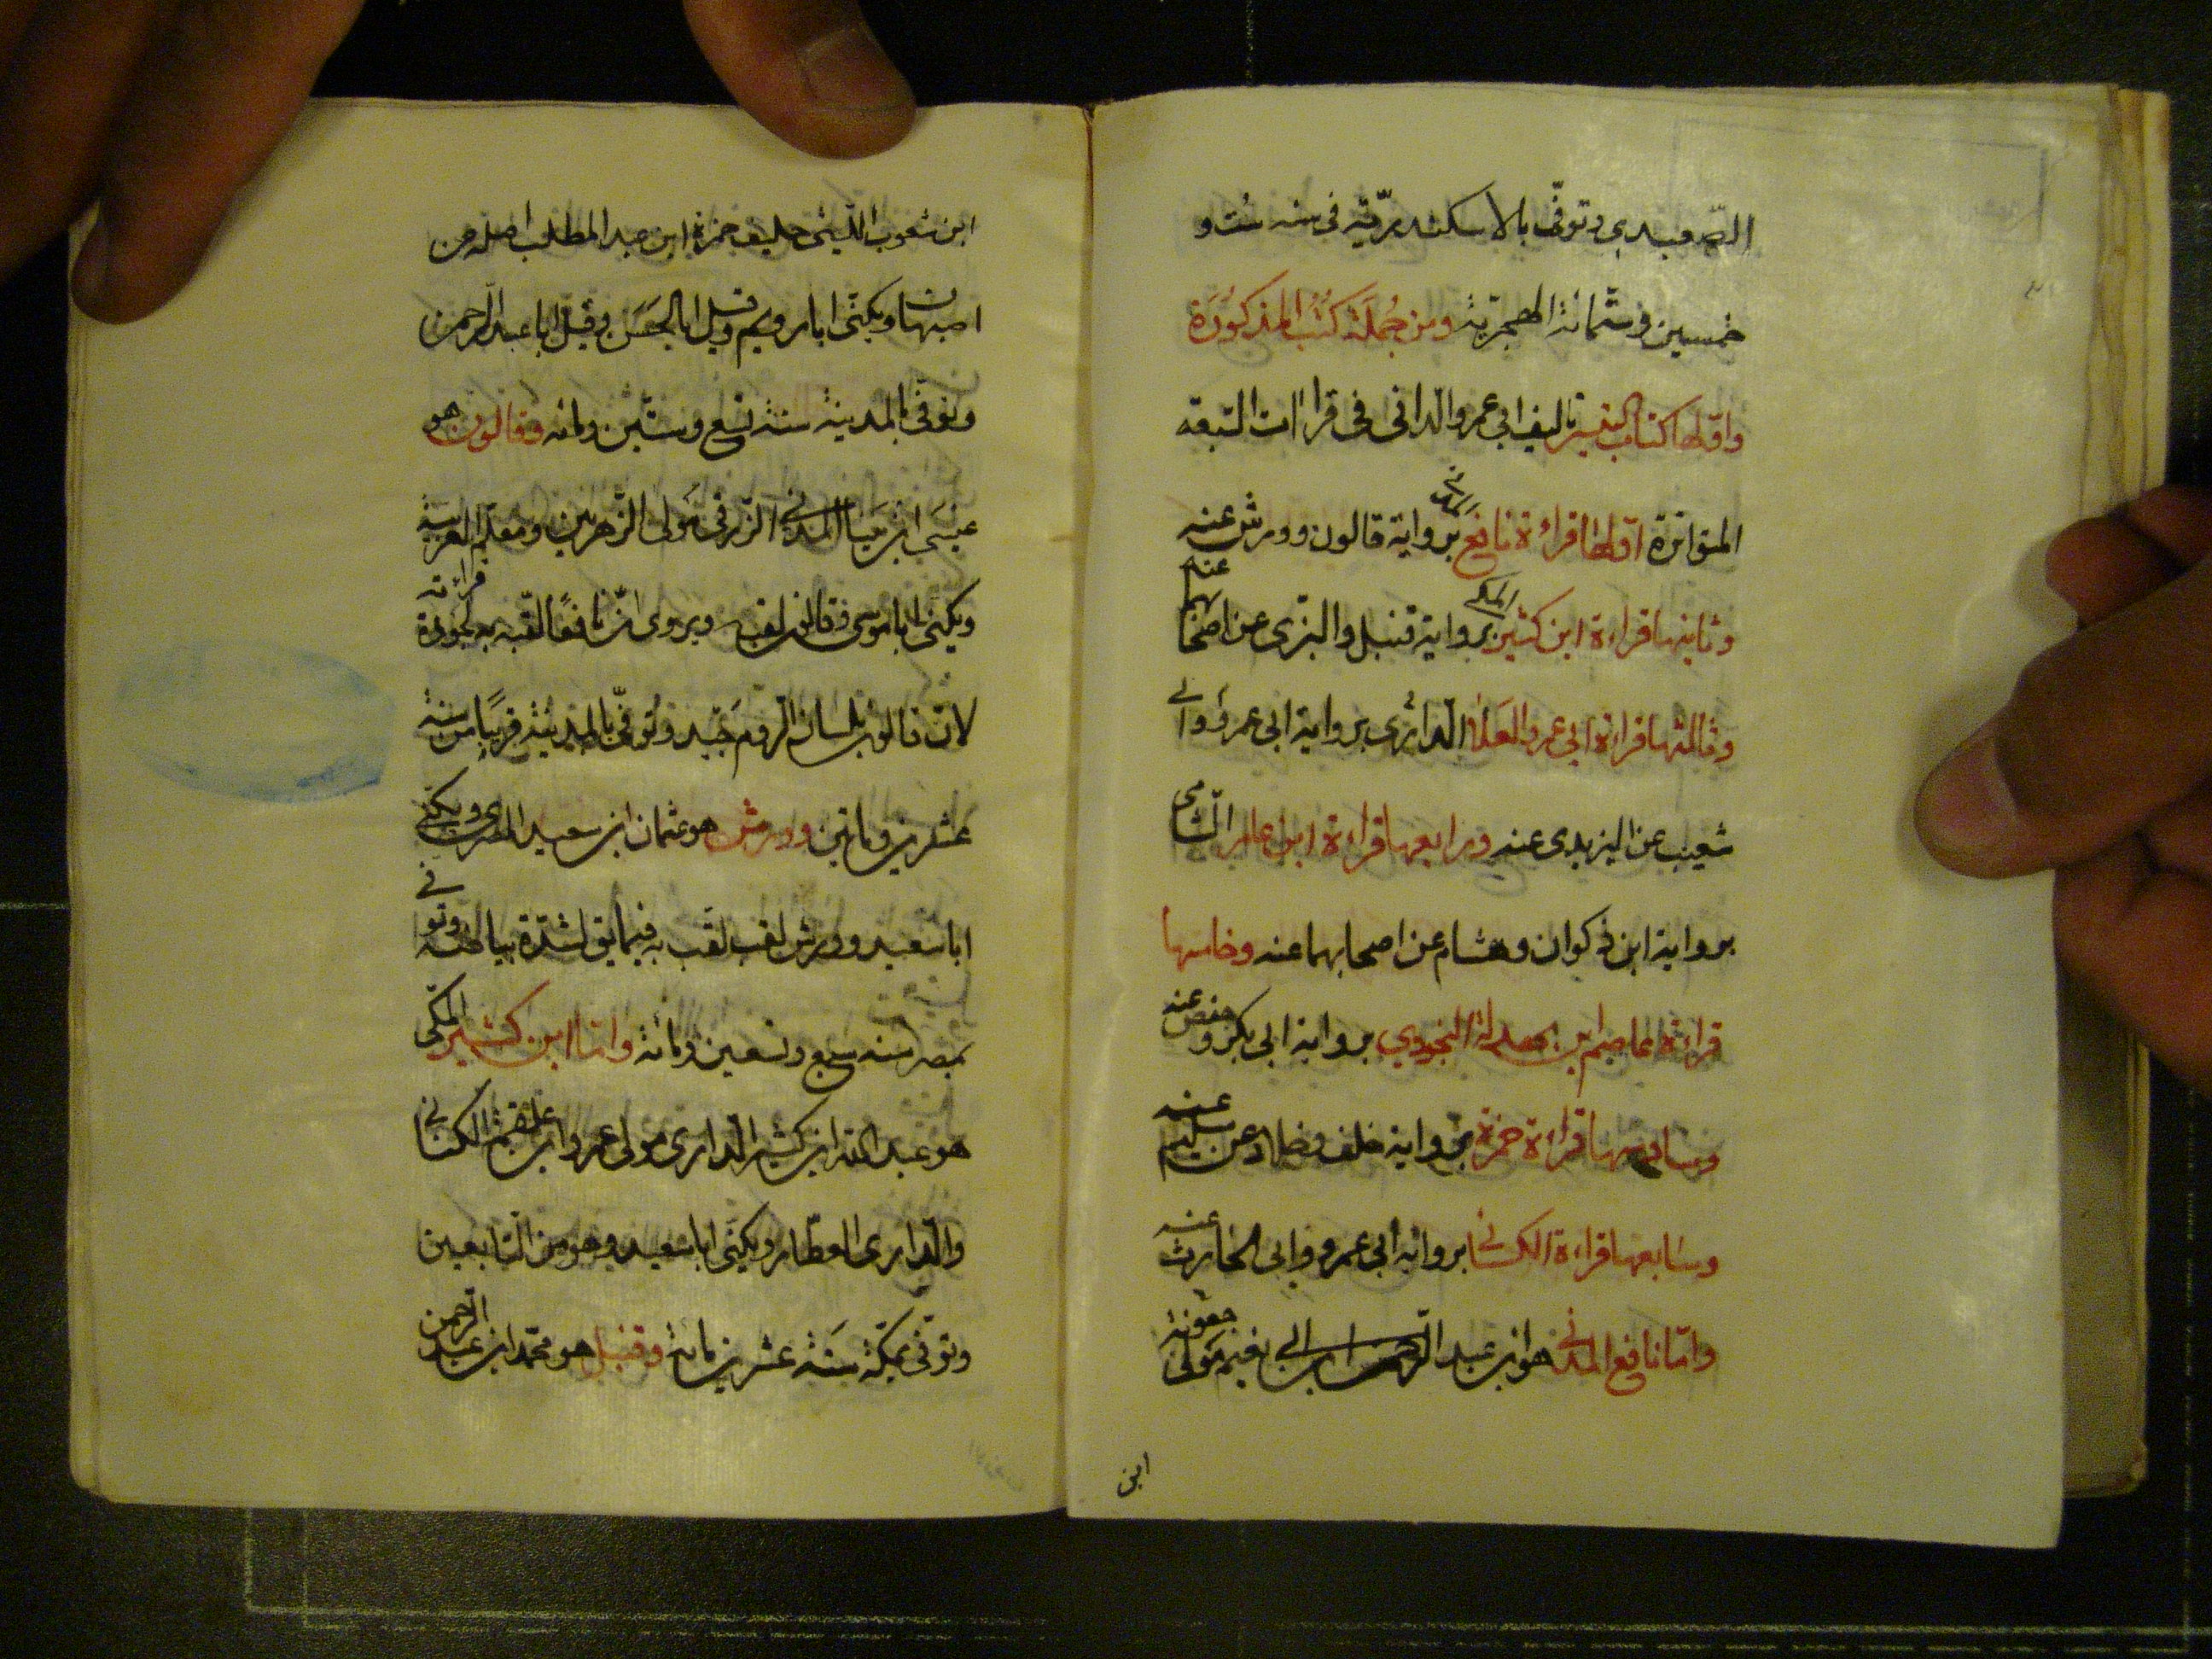 الصعيدي وتوفّى بالاسكندريّة فى سنه ستّ و
خمسين وستّمائة الهجريّة ومن جُملَة كتُبُ المذكورَة
واوّلها كتاب التيسير تاليف ابي عمر والدانى فى قراات السّبعة
المتواترة اوّلها قراءة نافع المدنے بروایة قالون وورش عنه
وثانيها قراءة ابن كثير المکے برواية قنبل والبزى عن اصحابهما عنه
وثالثها قراءة ابي عمرو العَلاء الدائرى برواية ابى عمرو وابے
شعيب عن اليزيدى عنه ورابعها قراءة ابن عامر الشّامى
برواية ابن ذكوان وهشام عن اصحابهما عنه وخامسها
قراءة عاصم ابن بهدلة النجودي برواية ابى بكر وحفص عنه
وسادسها قراءة حمزة برواية خلف وخلاد عن سليم عنه
وسابعها قراءة الکسائے برواية ابى عمرو وابى الحارث عنه
وامّا نافع المدنے هو ابن عبد الرّحمن ابن ابے نعيم مَولى جعونة
ابن
ابن شعوب اللّيثى حليف حمزة ابن عبد المطلب اصله من
اصبهان ويكنّى ابا رويم وقيل ابا الحَسَن وقيل ابا عبد الرحمن
وتوفّى بالمدينة سنة تسع وستّين ومائه وقالون هو
عيسَى ابن مينا المدنے الزّرقى مَولى الزّهريين ومعلّم العربية
ويكنى ابا موسى وقالون لقب ويروى انّ نافعًا لقّبه به لجودة قراءته
لانّ قالون بلسان الرّوم جَيّد وتُوفّى بالمدينة قريبًا من سنة
عشرين وماتين وورش هو عثمان ابن سعيد المصرى ويكنّے
ابا سعيد وورش لقب لقّب به فيما يق لشدّة بياضه وتوفے
بمصر سنه سبع وتسعين ومائة وامّا ابن كثير المكّى
هو عبد الله ابن كثير الدّارى مولى عمرو ابن علقمة الکنانے
والدّارى العطّار ويكنّى ابا سعيد وهو من التّابعين
وتوفّى بمكّة سَنة عشرين مائة وقنبل هو محمّد ابن عبد الرّحمن